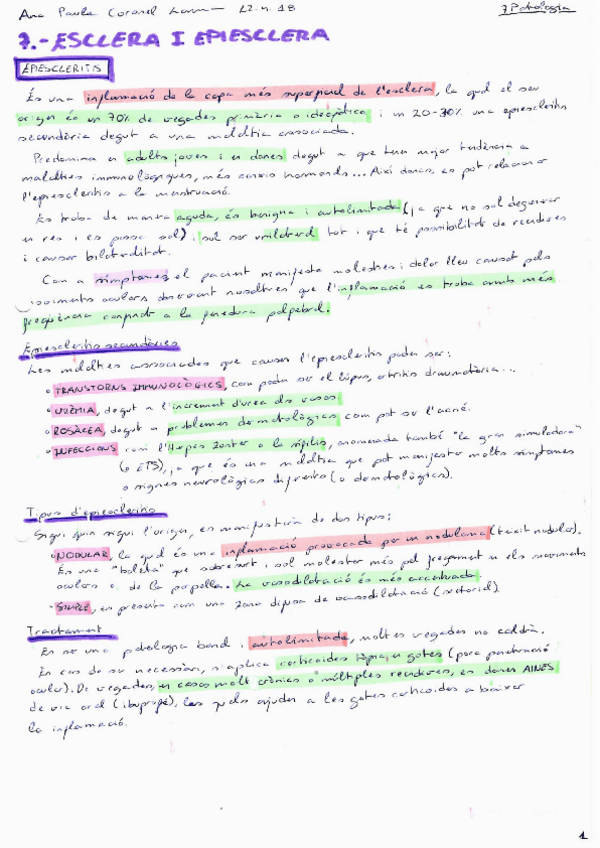 Ana Paula Coronel 12.4.18 7 Patología
7.- ESCLERA I EPIESCLERA
EPIESCLERITIS
És una inflamació de la capa més superficial de l'esclera, la qual el seu
origen és un 70% de vegades primària o ideopàtica i un 20-30% una epiescleritis
secundària degut a una malaltia associada.
Predomina en adults joves i en dones degut a que tenen major tendència a
malalties immunològiques, més canvis hormonals... Així doncs, es pot relacionar
l'epiescleritis a la menstruació.
Es troba de manera aguda, és benigna i autolimitada (ja que no sol degenerar
en res i es passa sol) i sol ser unilateral tot i que té possibilitat de recidives
i causar bilateralitat.
Com a símptomes el pacient manifesta molesties i dolor lleu causat pels
moviments oculars observant nosaltres que l'inflamació es troba amb més
freqüència conjunt a la fenedura palpebral.
Epiescleritis secundàries
Les malalties associades que causen l'epiescleritis poden ser:
• TRANSTORNS IMMUNOLÒGICS, com poden ser el lúpus, artritis
• URÈMIA, degut a l'increment d'urea als vasos.
• ROSÀCEA, degut a problemes dermatològics com pot ser l'acné.
• INFECCIONS com l'Herpes Zoster o la sífilis, anomenada també "la gran simuladora"
(o ETS), ja que és una malaltia que pot manifestar molts símptomes
o signes neurològics diferents (o dermatològics).
Tipus d'epiescleritis
Sigui quin sigui l'origen, es manifestaran de dos tipus:
• NODULAR, la qual és una inflamació provocada per un nodulana (teixit nodular).
És una "boleta" que sobresurt i sol molestar més pel fregament en els moviments
oculars o de la parpella. La vasodilatació és més accentuada.
- SIMPLE, es presenta com una zona difusa de vasodilatació (sectorial).
Tractament
En ser una patologia banal i autolimitada, moltes vegades no caldrà.
En cas de ser necessàri, s'aplica corticoides tòpics en gotes (poca penetració
ocular). De vegades, en casos molt crònics o múltiples recidives, es donen AINES
de via oral (ibuprofé), les quals ajuden a les gotes corticoides a baixar
la inflamació.
1